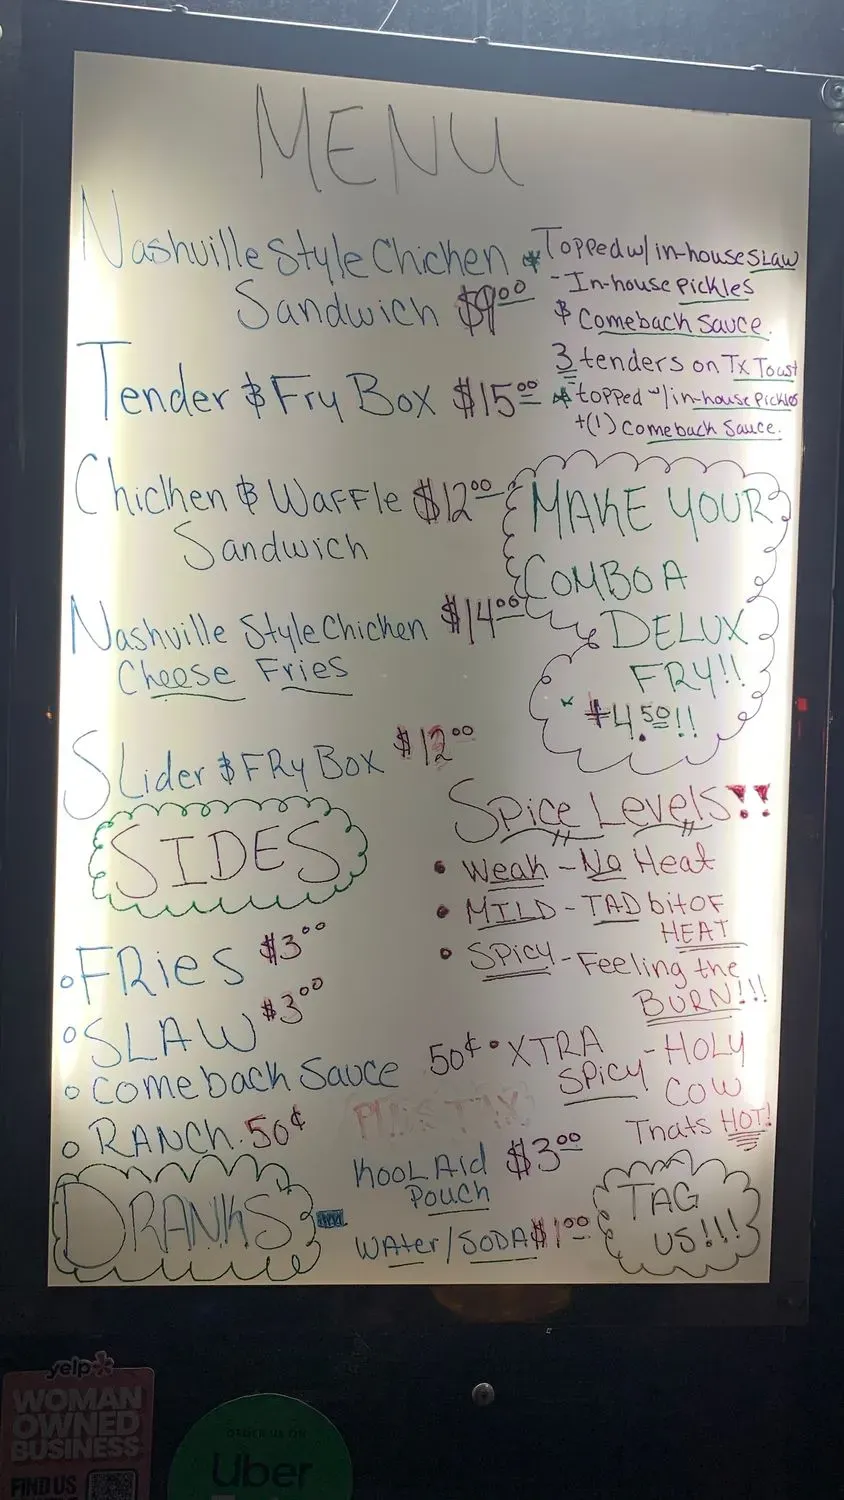 MENU
Nashville Style Chicken
Sandwich $9.00
* Topped w/ in-house Slaw
- In-house pickles
& Comeback Sauce.
Tender & Fry Box $15.00
3 tenders on Tx Toast
* topped w/ in-house pickles
+(1) Comeback Sauce.
Chicken & Waffle $12.00
Sandwich
MAKE YOUR
COMBO A
DELUX
FRY!!
* $4.50!!
Nashville Style Chicken $14.00
Cheese Fries
Slider & FRy Box $12.00
SIDES
• FRies $3.00
• SLAW $3.00
• Comeback Sauce 50¢
• RANCH. 50¢
Spice Levels!!
• Weak - No Heat
• MILD - TAD bit OF
HEAT
• SPicy - Feeling the
BURN!!!
• XTRA
SPicy - HOLY
COW
Thats HOT!
PLUS TAX
DRANKS -
KOOL Aid $3.00
Pouch
WAter/SODA $1.00
TAG
US!!!
yelp
WOMAN
OWNED
BUSINESS
FIND US
ORDER US ON
Uber